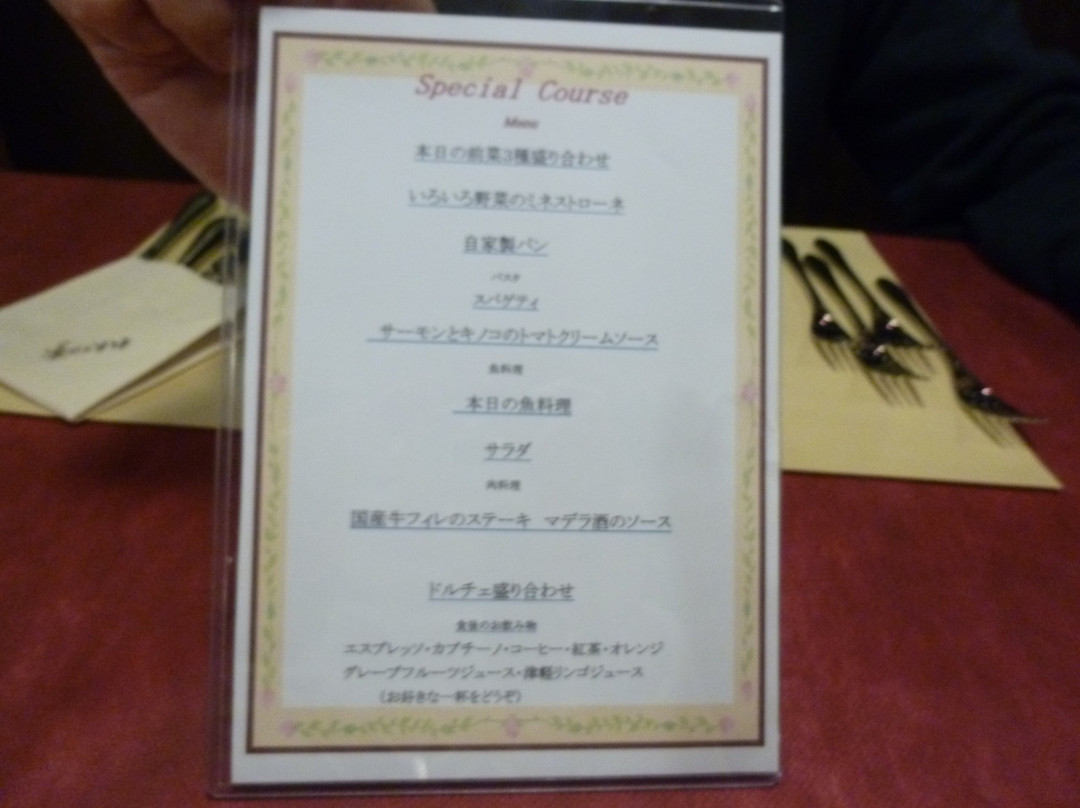 Special Course
Menu
本日の前菜3種盛り合わせ
いろいろ野菜のミネストローネ
自家製パン
パスタ
スパゲティ
サーモンとキノコのトマトクリームソース
魚料理
本日の魚料理
サラダ
肉料理
国産牛フィレのステーキ　マデラ酒のソース
ドルチェ盛り合わせ
食後のお飲み物
エスプレッソ・カプチーノ・コーヒー・紅茶・オレンジ
グレープフルーツジュース・津軽リンゴジュース
（お好きな一杯をどうぞ）